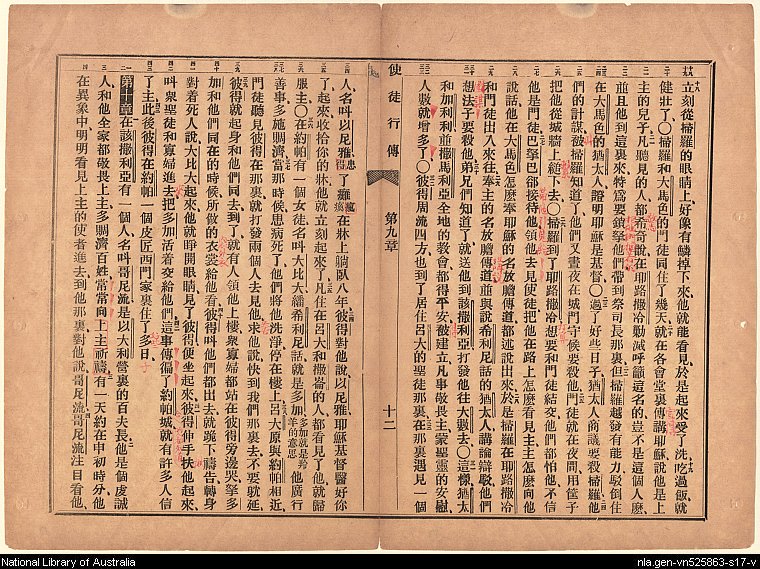 立刻從掃羅的眼睛上好像有鱗掉下來他就能看見於是起來受了洗吃過飯就
健壯了○掃羅和大馬色的門徒同住了幾天就在各會堂裏傳講耶穌說他是上
主的兒子凡聽見的人都希奇說在耶路撒冷勦滅呼籲這名的豈不是這個人麼
並且他到這裏來特爲要鎖拏他們帶到祭司長那裏但掃羅越發有能力駁倒住
在大馬色的猶太人證明耶穌是基督○過了好些日子猶太人商議要殺掃羅他
們的計謀被掃羅知道了他們又晝夜在城門守候要殺他門徒就在夜間用筐子
把他從城牆上縋下去○掃羅到了耶路撒冷想要和門徒結交他們都怕他不信
他是門徒巴拏巴卻接待他領他去見使徒把他在路上怎麼看見主主怎麼向他
說話他在大馬色怎麼奉耶穌的名放膽傳道都述說出來於是掃羅在耶路撒冷
和門徒出入來往奉主的名放膽傳道並與說希利尼話的猶太人講論辯駁他們
想法子要殺他弟兄們知道了就送他到該撒利亞打發他往大數去○這樣猶太
和加利利並撒馬利亞全地的教會都得平安被建立凡事敬畏上主蒙聖靈的安慰
人數就增多了○彼得周流四方也到了居住呂大的聖徒那裏在那裏遇見一個
使徒行傳 第九章 十二
人名叫以尼雅得了癱瘓在牀上躺臥八年彼得對他說以尼雅耶穌基督醫好你
了起來收拾你的牀他就立刻起來了凡住在呂大和撒崙的人都看見了他就歸
服主○在約帕有一個女徒名叫大比大繙希利尼話就是多加多加就是羚羊的意思他廣行
善事多施賙濟當那時候患病死了他們將他洗淨停在樓上呂大原與約帕相近
門徒聽見彼得在那裏就打發兩個人去見他求他說快到我們那裏去不要躭延
彼得就起身和他們同去到了就有人領他上樓衆寡婦都站在彼得旁邊哭拏多
加和他們同在的時候所做的衣裳給他看彼得叫他們都出去就跪下禱告轉身
對着死人說大比大起來他就睜開眼睛見了彼得便坐起來彼得伸手扶他起來
叫衆聖徒和寡婦進去把多加活着交給他們這事傳徧了約帕城就有許多人信
了主此後彼得在約帕一個皮匠西門家裏住了多日
第十章 在該撒利亞有一個人名叫哥尼流是以大利營裏的百夫長他是個虔誠
人和他全家都敬畏上主多賙濟百姓常常向上主祈禱有一天約在申初時分他
在異象中明明看見上主的使者進去到他那裏對他說哥尼流哥尼流注目看他
National Library of Australia
nla.gen-vn525863-s17-v